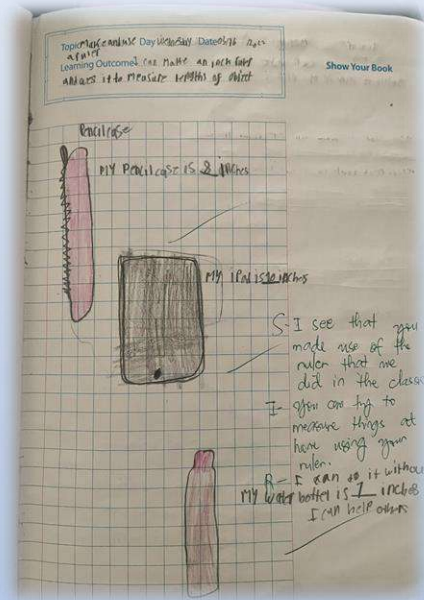 Topic Make and use Day Wednesday Date
a ruler
Learning Outcome I can make an inch ruler
and use it to measure lengths of object
Show Your Book
Pencilcase
MY Pencilcase is 8 inches
MY iPad is 10 inches
S- I see that you
made use of the
ruler that we
did in the class
I- you can try to
measure things at
home using your
ruler.
R- I can do it without
MY water bottel is 7 inches
I can help others